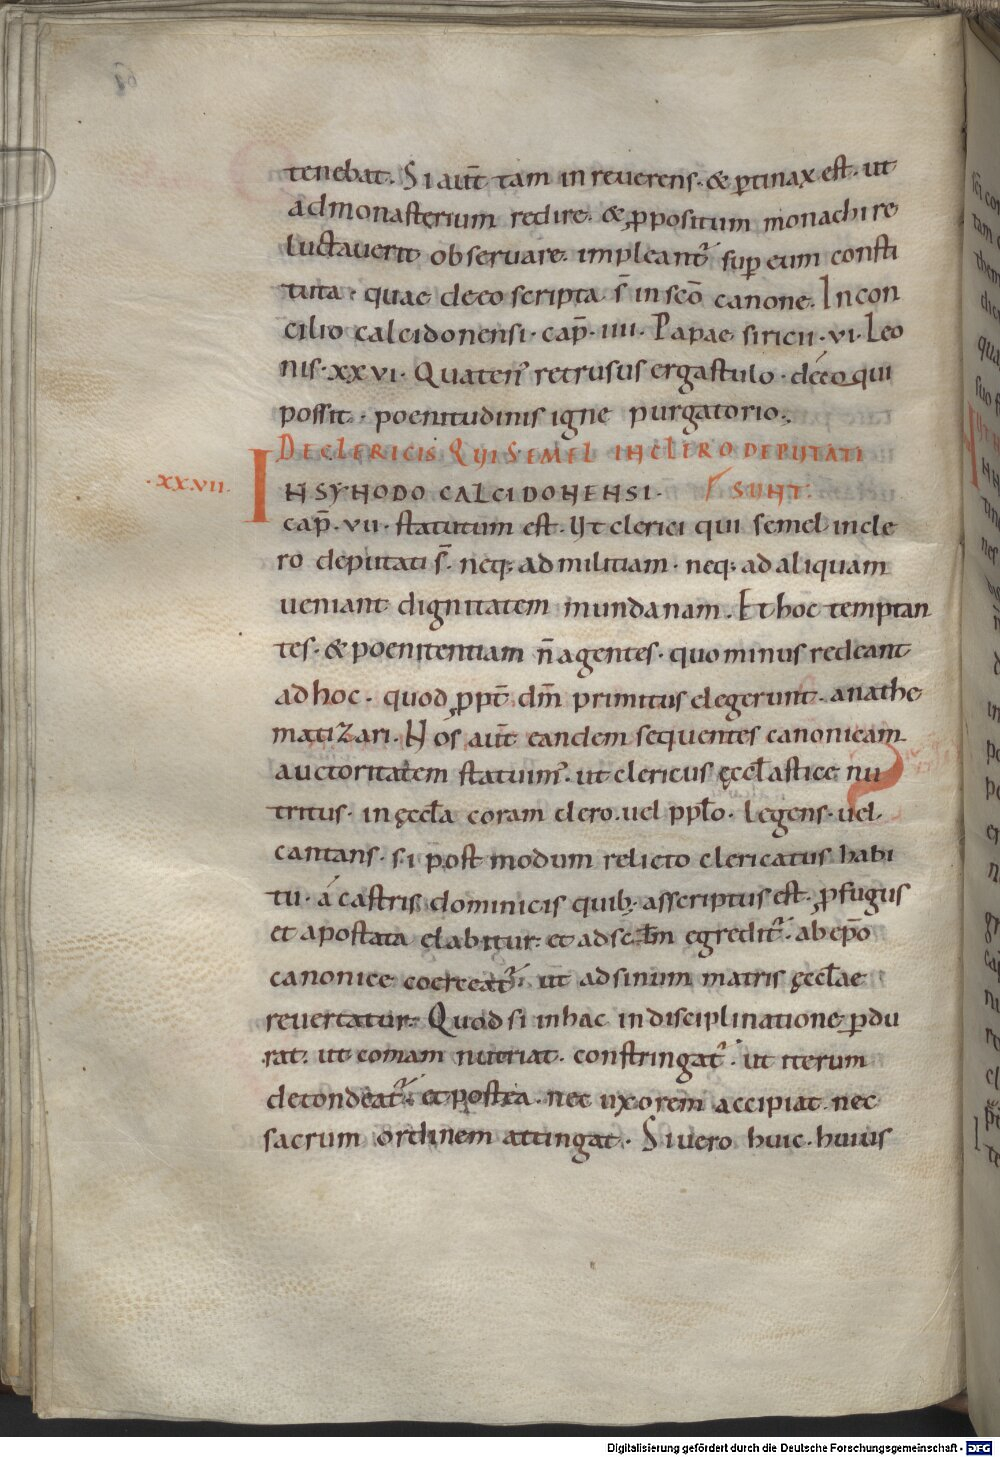 tenebat. Si aut̄ tam in reuerens. & p̱tinax est. ut
ad monasterium redire. & p̱positum monachi re
luctauerit obseruare. impleant᷑ sup̱ eum consti
tuta. quae de eo scripta s̄ in sc̄o canone. In con
cilio calcidonensi. cap̄. IIII. Papae siricii. VI. Leo
nis. XXVI. Quaten᾽ retrusus ergastulo. decoqui
possit. poenitudinis igne purgatorio;
DE CLERICIS QUI SEMEL IN CLERO DEPUTATI
SUNT.
.XXVII.
IN SYNODO CALCIDONENSI.
cap̄. VII. statutum est. Ut clerici qui semel in cle
ro deputati s̄. neq; ad militiam. neq; ad aliquam
ueniant dignitatem mundanam. Et hoc temptan
tes. & poenitentiam n̄ agentes. quo minus redeant
ad hoc. quod p̱pt̄ dm̄ primitus elegerunt. anathe
matizari. Nós aut̄ eandem sequentes canonicam
auctoritatem statuim᾽. ut clericus ęccl̄astice nu
tritus. in ęccl̄a coram clero. uel ppl̄o. legens. uel.
cantans. si post modum relicto clericatus habi
tu. á castris dominicis quib; asscriptus est. p̱fugus
et apostata elabitur. et ad sc̄lm egredit᷑. ab ep̄o
canonice coerceat᷑. ut ad sinum matris ęccl̄ae
reuertatur. Quod si in hac indisciplinatione p̱du
rat. ut comam nutriat. constringat᷑. ut iterum
detondeat᷑. et postea. nec uxorem accipiat. nec
sacrum ordinem attingat. Si uero huic. huius
Digitalisierung gefördert durch die Deutsche Forschungsgemeinschaft - DFG